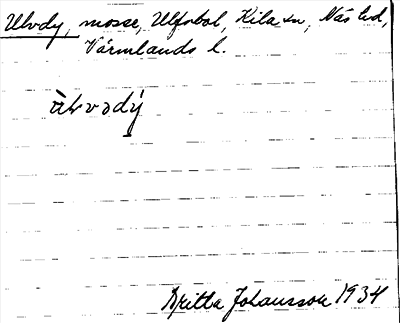 Ulvdy, mosse, Ulfsbol, Kila sn, Näs hd,
Värmlands l.
Britta Johansson 1934